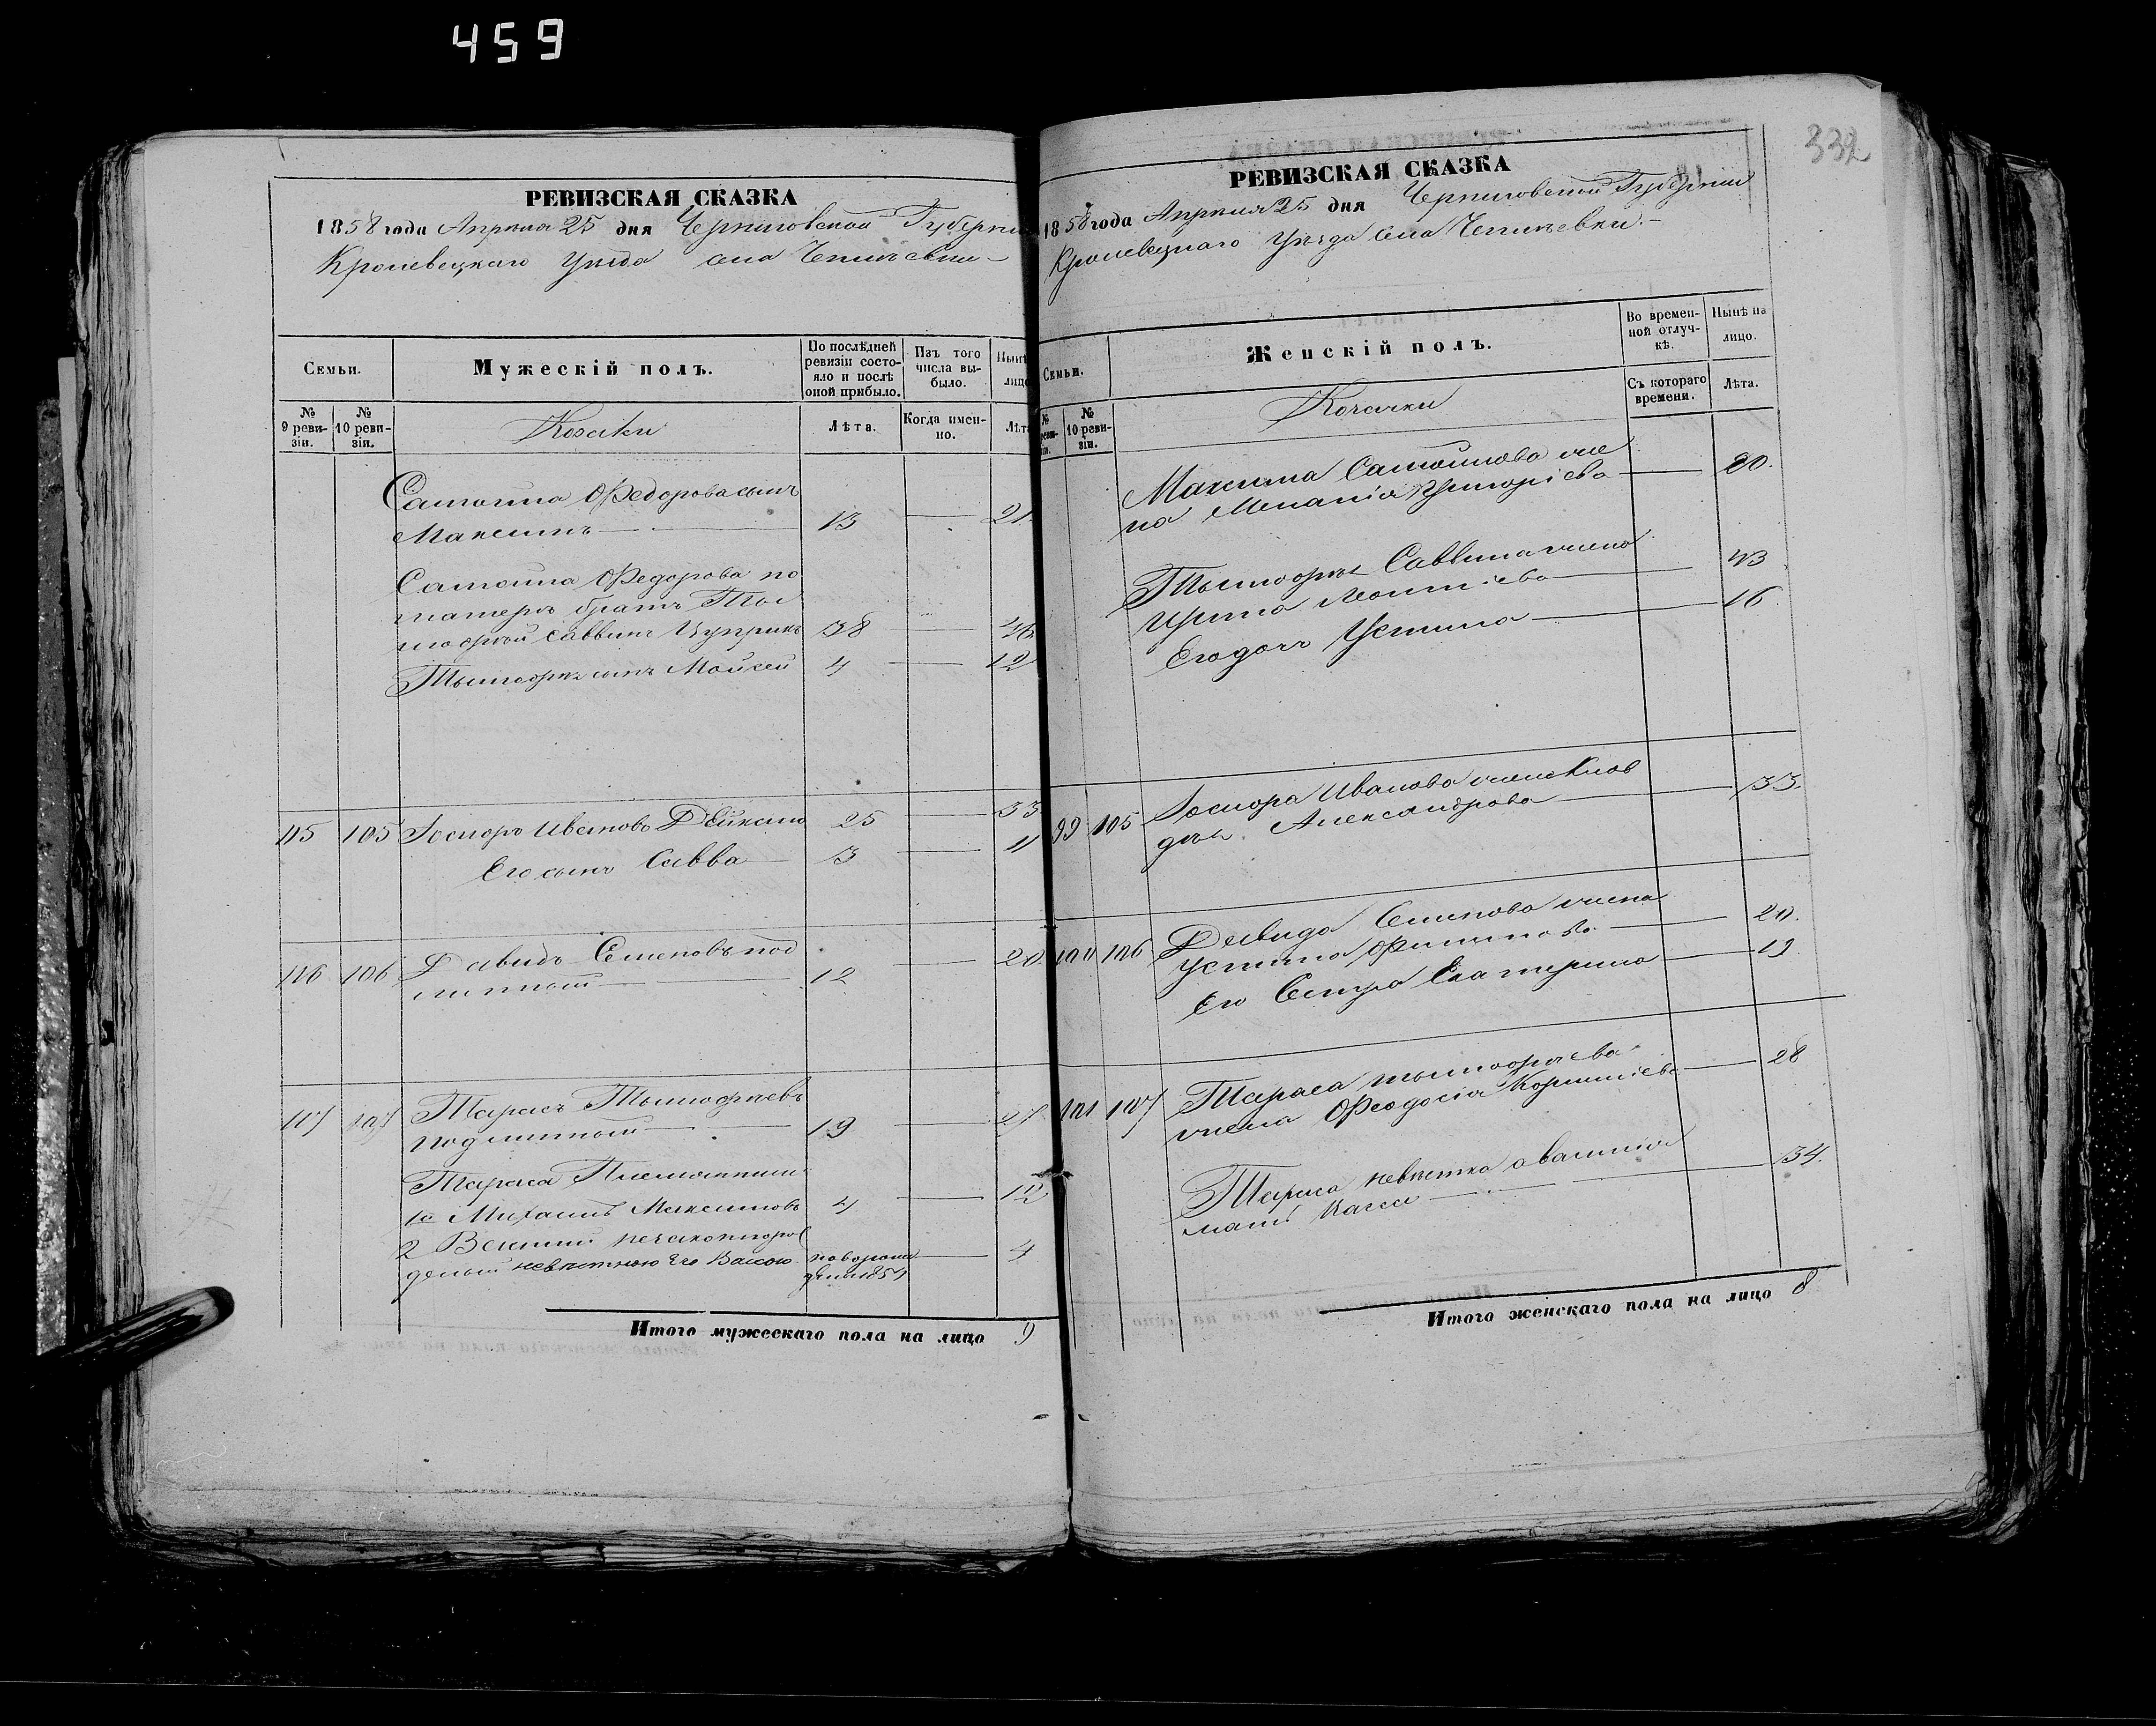 459
РЕВИЗСКАЯ СКАЗКА
1858 года Апреля 25 дня Черниговской Губерни
Кролевецкаго Уезда села Чепиевки
Семьи.
Мужескій полъ.
По послѣдней ревизіи состояло и послѣ оной прибыло.
Изъ того числа выбыло.
Нынѣ лицо
№ 9 ревизіи.
№ 10 ревизіи.
Козаки
Лѣта.
Когда именно.
Лѣт
Самойла Федорова сынъ
Максимъ 13 21
Самойла Федорова по
матери братъ Ты
мофѣй Саввинъ 38 46
Тымофея сынъ Мойсей 4 12
105 Іосифъ Ивановъ Дейкало 25 33
Его сынъ Савва 3 11
106 106 Давидъ Семеновъ под
липный 12 20
107 107 Тарасъ Тымофеевъ
подлипный 19 27
Тараса Племянники
1й Михаилъ Максимовъ 4 12
2
деный невѣсткою Его Вассою 4
Итого мужескаго пола на лицо 9
332
РЕВИЗСКАЯ СКАЗКА
1858 года Апреля 25 дня Черниговской Губерніи
Кролевецкаго Уезда села Чепиевки
Семьи.
Женскій полъ.
Во временной отлучкѣ.
Нынѣ на лицо.
№ 10 ревизіи.
Козачки
Съ котораго времени.
Лѣта.
Максима Самойлова же
на Меланія Григоріева 20.
Тымофея Саввина жена
Ирина 43
Его дочь Устина 16.
99 105 Іосифа Иванова жена Клав
дія Александрова 33.
100 106 Давида Семенова жена
Устина Филипова 20.
Его Сестра Екатерина 19
101 107 Тараса тымофеева
жена Феодосія Корниліева 28
Тараса невѣстка
мать Васса 34.
Итого женскаго пола на лицо 8